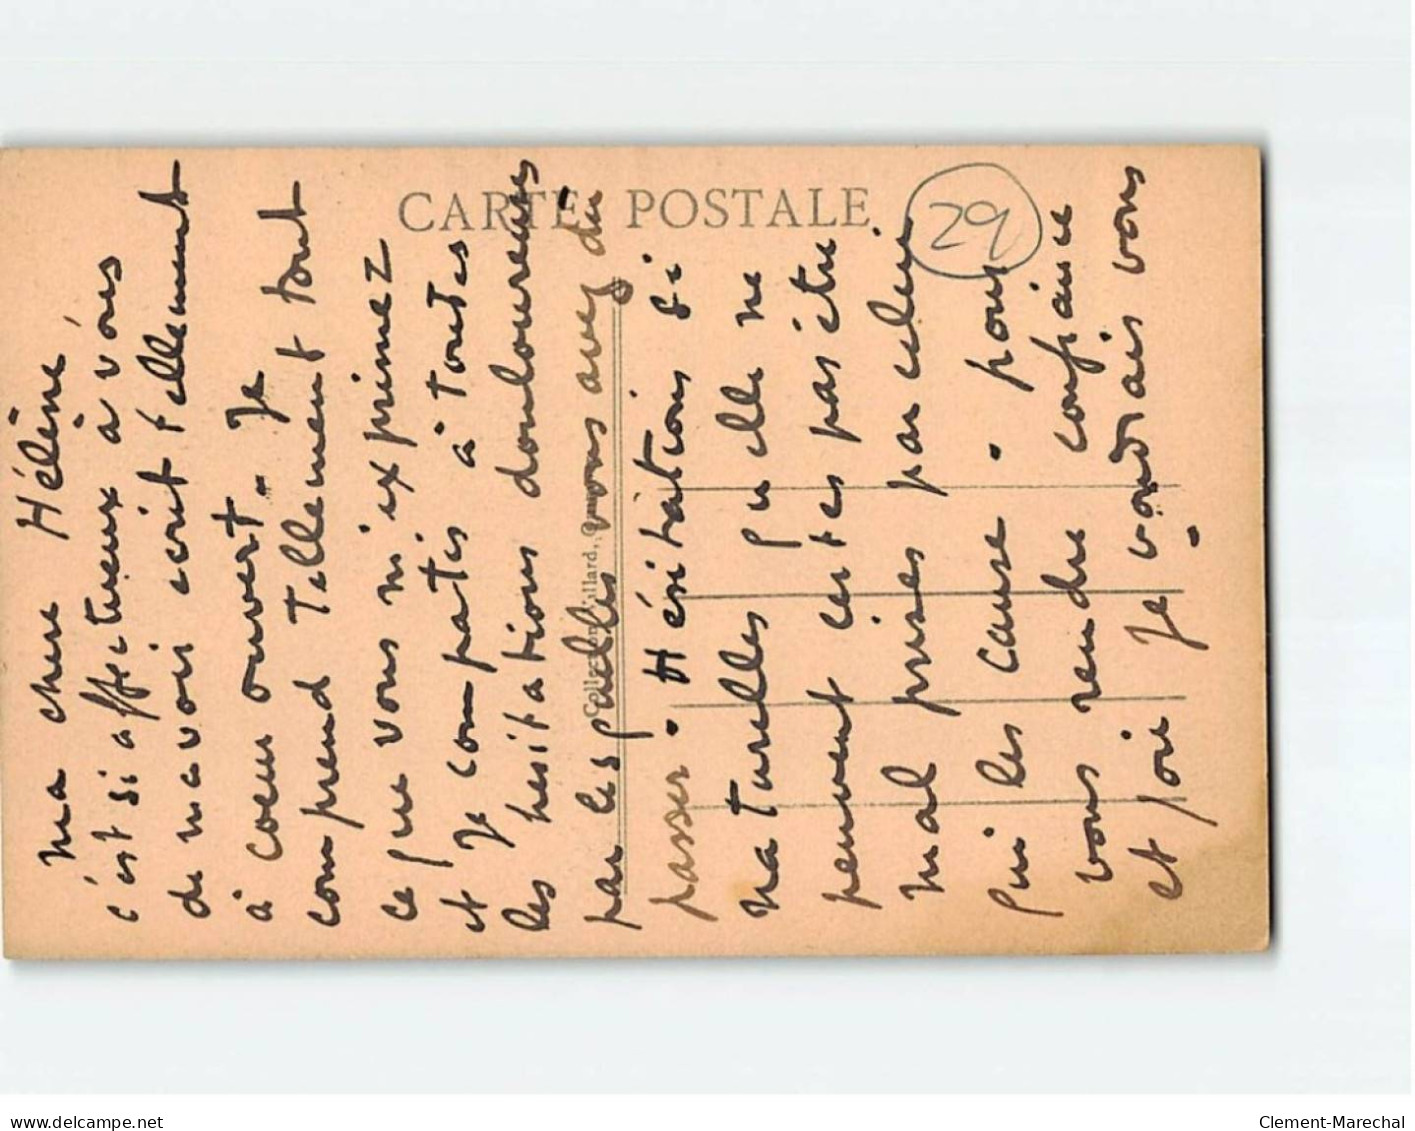 CARTE POSTALE
29
Ma chere Hélène,
c'est si affectueux à vous
de m'avoir écrit tellement
à coeur ouvert - Je
comprend tellement tout
ce que vous m'exprimez
et Je compatis à toutes
les hesitations douloureuses
par lesquelles vous avez du
passer. Hésitations si
naturelles qu'elle ne
peuvent certes pas être
mal prises par celui
qui les cause. pour
vous rendre confiance
et joie Je voudrais vous
Clement-Marechal